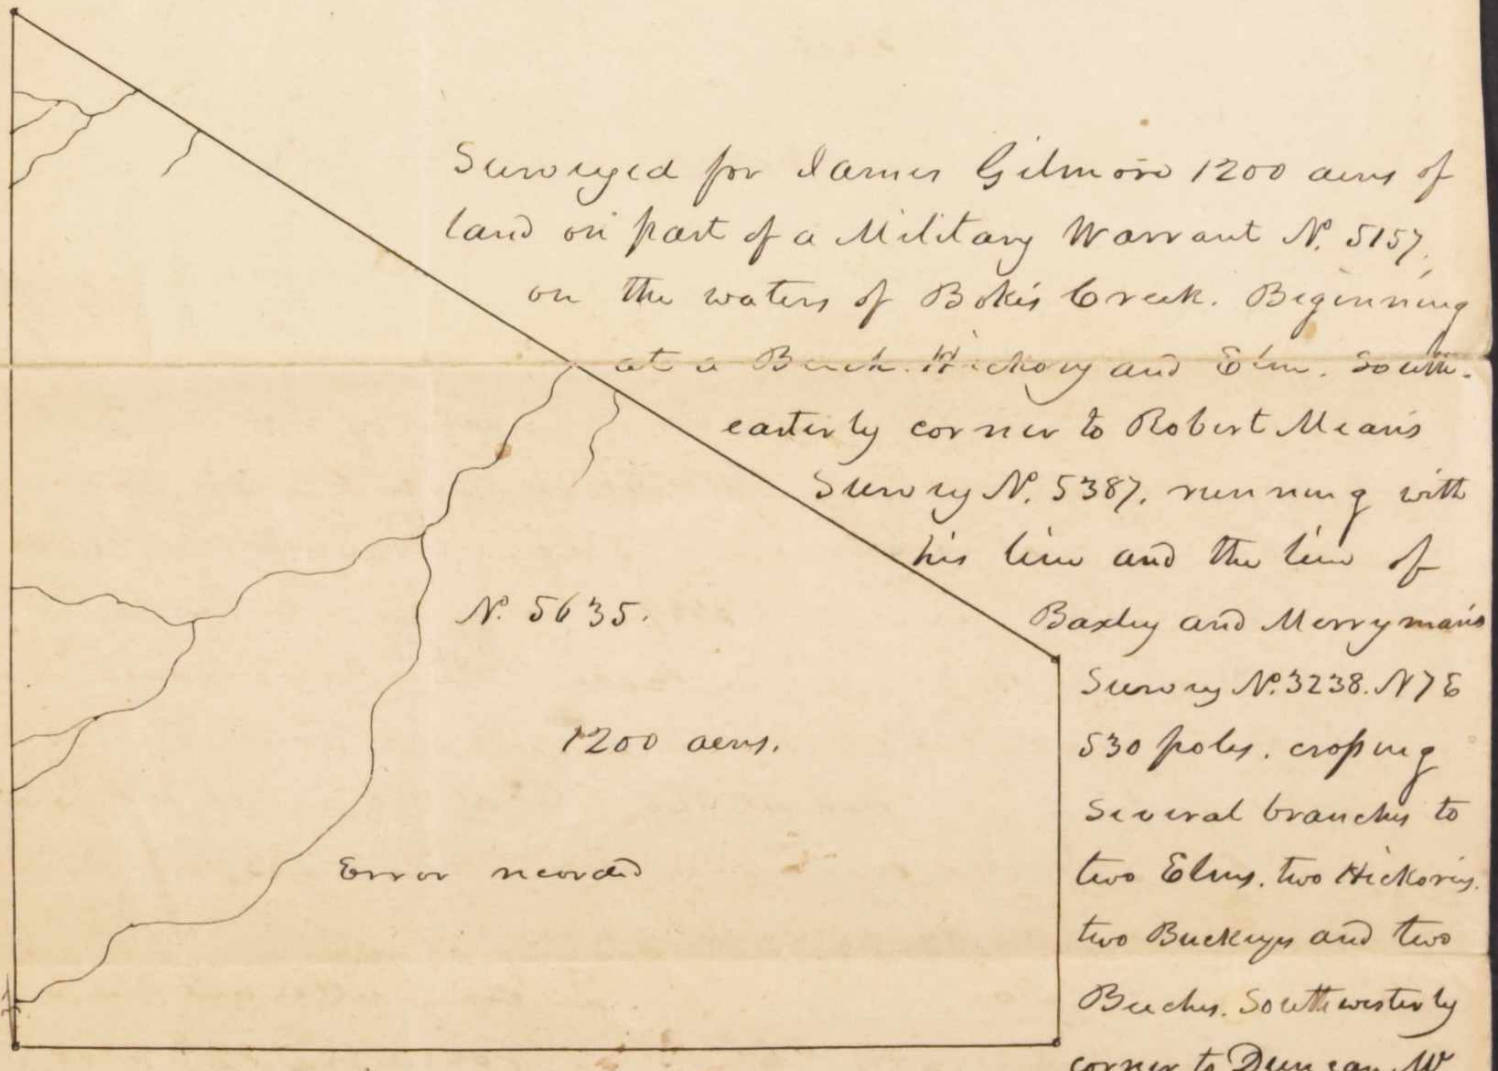 Surveyed for James Gilmore 1200 acres of
land on part of a Military Warrant No. 5157,
on the waters of Bokes Creek. Beginning
at a Beech. Hickory and Elm. South-
easterly corner to Robert Means
Survey No. 5387. running with
his line and the line of
Baxley and Merrymans
Survey No. 3238. N 7 E
530 poles. crossing
Several branches to
two Elms. two Hickories.
two Buckeyes and two
Beeches. Southwesterly
corner to Duncan M
No. 5635.
1200 acres.
Error recorded